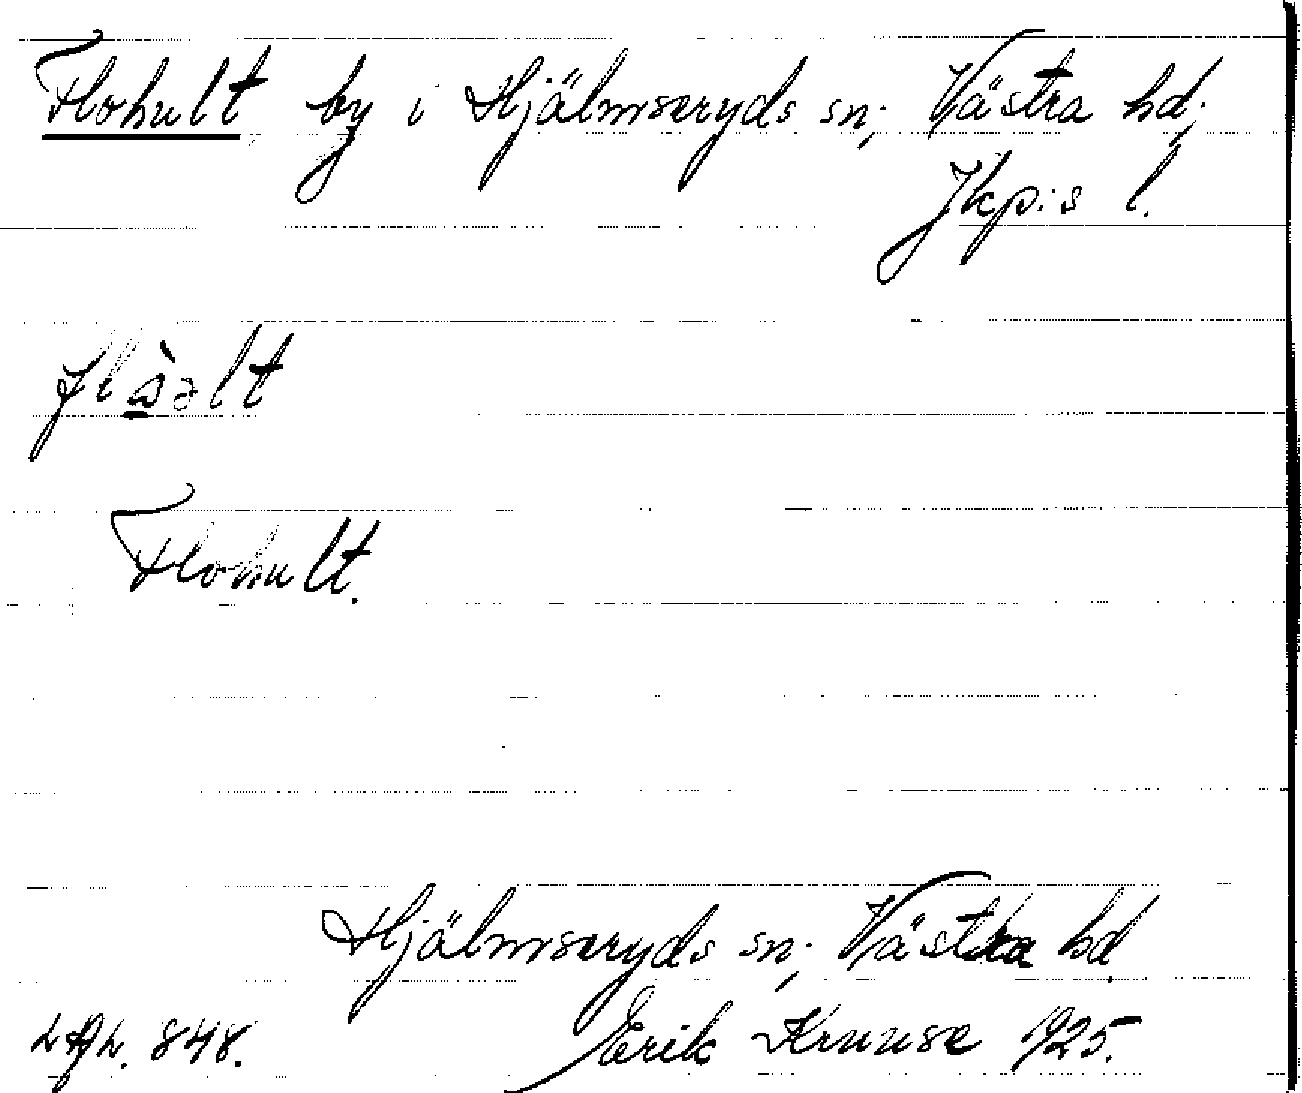 Flohult by i Hjälmseryds sn; Västra hd;
Jkp:s l.
Flohult.
Hjälmseryds sn; Västra hd
Erik Kruuse 1925.
848.